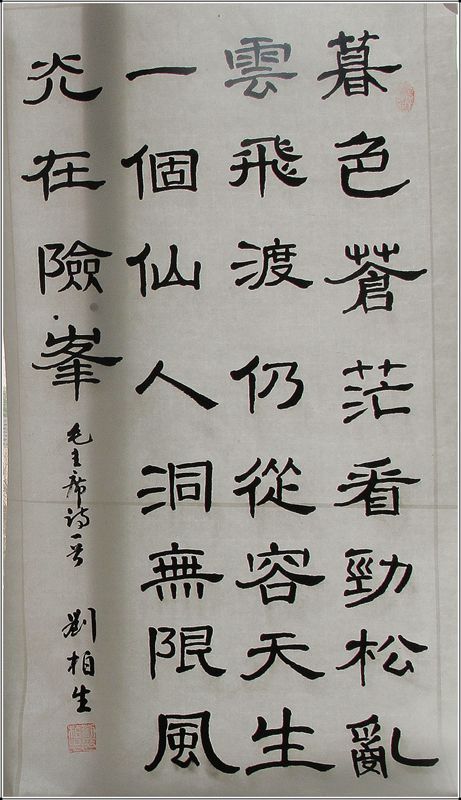 暮色蒼茫看勁松亂
雲飛渡仍從容天生
一個仙人洞無限風
光在險峯
毛主席诗一首
劉柏生